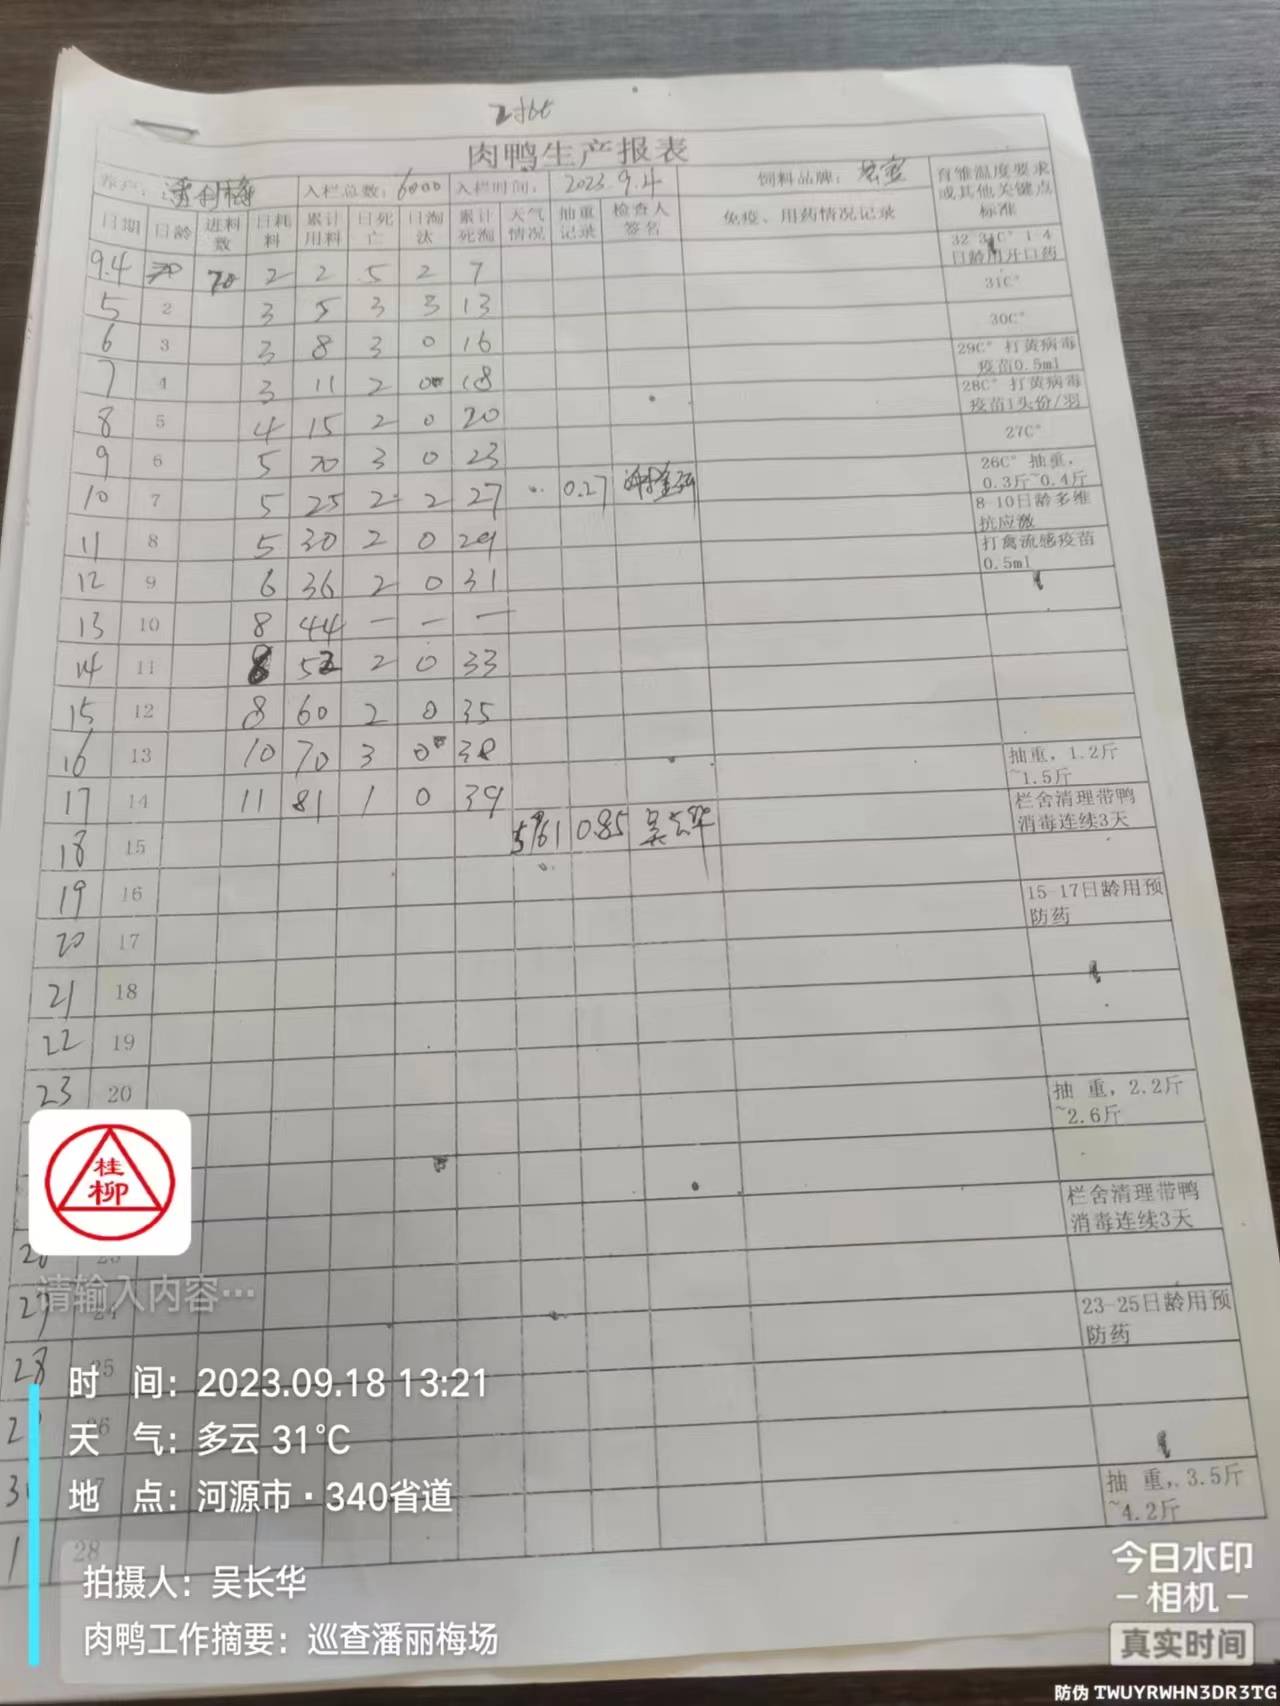 2批
肉鸭生产报表
养户: 潘利梅 入栏总数: 6000 入栏时间: 2023.9.4 饲料品牌: 育雏温度要求或其他关键点标准
日期 日龄 进料数 日耗料 累计用料 日死亡 日淘汰 累计死淘 天气情况 抽重记录 检查人签名 免疫、用药情况记录
9.4 70 2 2 5 2 7 1-4日龄用开口药
5 2 3 5 3 3 13 31C°
6 3 3 8 3 0 16 30C°
7 4 3 11 2 0 18 29C° 打黄病毒疫苗0.5ml
8 5 4 15 2 0 20 28C° 打黄病毒疫苗1头份/羽
9 6 5 20 3 0 23 27C°
10 7 5 25 2 2 27 0.27 26C° 抽重,0.3斤~0.4斤
11 8 5 30 2 0 29 8-10日龄多维抗应激
12 9 6 36 2 0 31 打禽流感疫苗0.5ml
13 10 8 44 — — —
14 11 8 52 2 0 33
15 12 8 60 2 0 35
16 13 10 70 3 0 38 抽重, 1.2斤~1.5斤
17 14 11 81 1 0 39 栏舍清理带鸭消毒连续3天
18 15 5761 0.85 吴长华
19 16 15-17日龄用预防药
20 17
21 18
22 19
23 20 抽 重, 2.2斤~2.6斤
桂柳
栏舍清理带鸭消毒连续3天
请输入内容…
27 24 23-25日龄用预防药
28 25
抽 重, 3.5斤~4.2斤
1 28
时 间: 2023.09.18 13:21
天 气: 多云 31℃
地 点: 河源市·340省道
拍摄人: 吴长华
肉鸭工作摘要: 巡查潘丽梅场
今日水印
-相机-
真实时间
防伪 TWUYRWHN3DR3TG